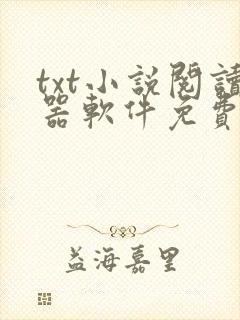 txt小說閱讀
器軟件免費
益海嘉里